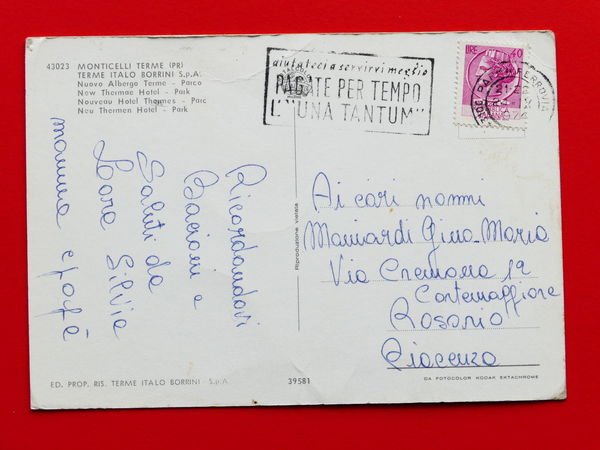 43023 MONTICELLI TERME (PR)
TERME ITALO BORRINI S.p.A.
Nuovo Albergo Terme - Parco
New Thermae Hotel - Park
Nouveau Hotel Thermes - Parc
Neu Thermen Hotel - Park
aiutateci a servirvi meglio
PAGATE PER TEMPO
L'"UNA TANTUM"
LIRE 40
FERROVIA
Ricordandovi
Bacioni e
Saluti da
Lara Silvia
mamma e papà
Riproduzione vietata
Ai cari nonni
Mainardi Gino-Maria
Via Cremona 19
Cortemaggiore
Rosario
Piacenza
ED. PROP. RIS. TERME ITALO BORRINI - S.p.A.
39581
DA FOTOCOLOR KODAK EKTACHROME